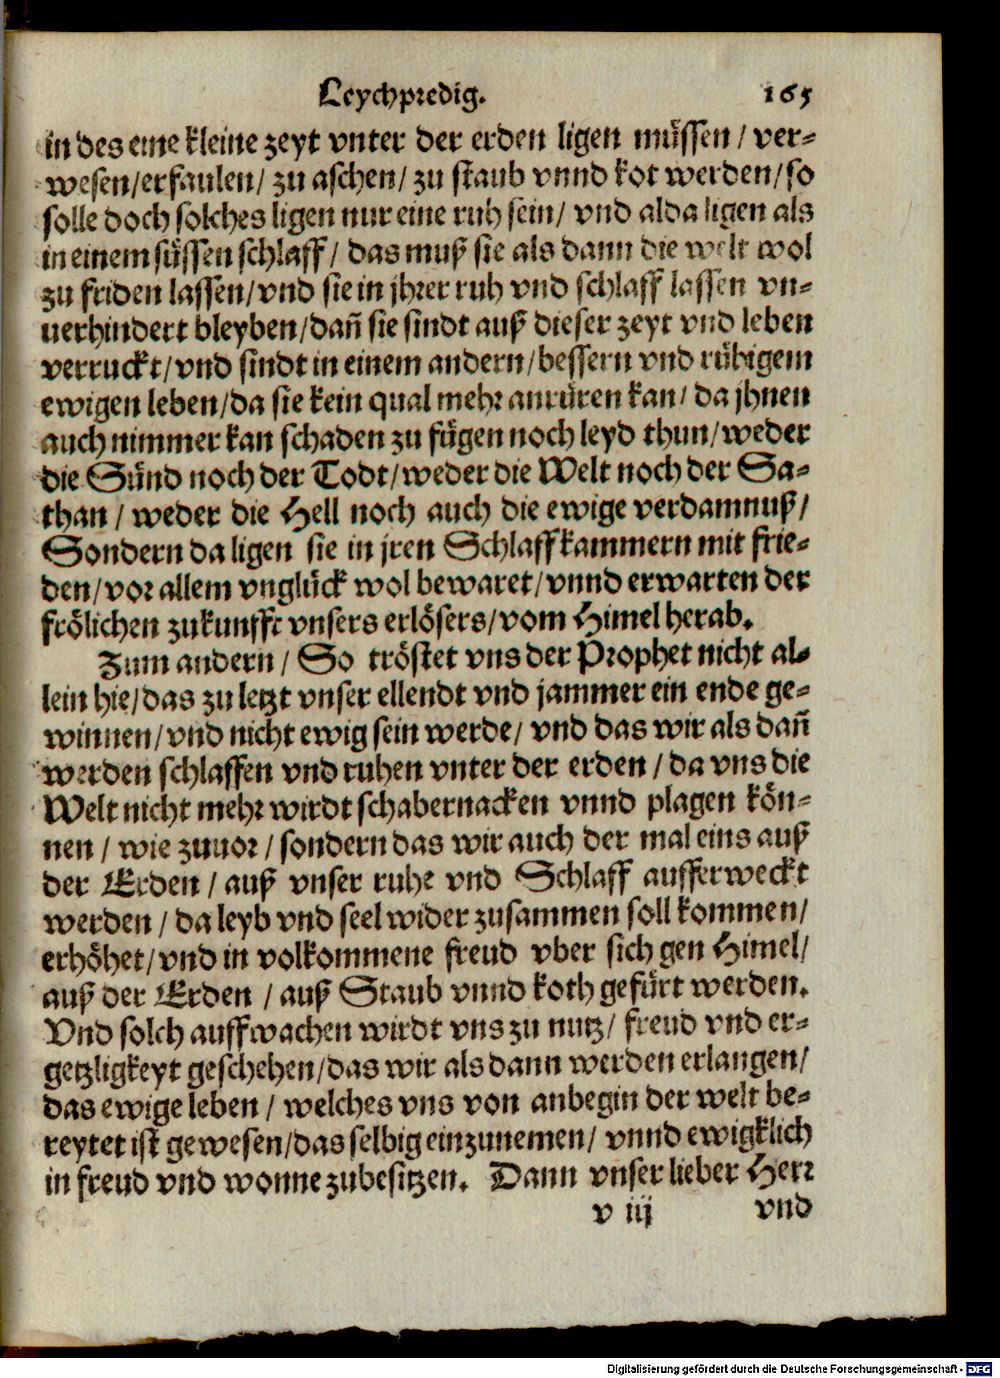 Leychpredig. 165
in des eine kleine zeyt vnter der erden ligen müssen / ver-
wesen/erfaulen/ zu aschen/ zu staub vnnd kot werden/so
solle doch solches ligen nur eine ruh sein/ vnd alda ligen als
in einem süssen schlaff/ das muß sie als dann die welt wol
zu friden lassen/vnd sie in jhrer ruh vnd schlaff lassen vn-
uerhindert bleyben/dañ sie sindt auß dieser zeyt vnd leben
verruckt/vnd sindt in einem andern/bessern vnd rühigem
ewigen leben/da sie kein qual mehr anrüren kan/ da jhnen
auch nimmer kan schaden zu fügen noch leyd thun/weder
die Sünd noch der Todt/weder die Welt noch der Sa-
than / weder die Hell noch auch die ewige verdamnuß/
Sondern da ligen sie in jren Schlaffkammern mit frie-
den/vor allem vnglück wol bewaret/vnnd erwarten der
frölichen zukunfft vnsers erlösers/vom Himel herab.
Zum andern / So tröstet vns der Prophet nicht al-
lein hie/das zu letzt vnser ellendt vnd jammer ein ende ge-
winnen/vnd nicht ewig sein werde/ vnd das wir als dañ
werden schlaffen vnd ruhen vnter der erden / da vns die
Welt nicht mehr wirdt schabernacken vnnd plagen kön-
nen / wie zuuor / sondern das wir auch der mal eins auß
der Erden / auß vnser ruhe vnd Schlaff aufferweckt
werden / da leyb vnd seel wider zusammen soll kommen/
erhöhet/vnd in volkommene freud vber sich gen Himel/
auß der Erden / auß Staub vnnd koth gefürt werden.
Vnd solch auffwachen wirdt vns zu nutz/ freud vnd er-
getzligkeyt geschehen/das wir als dann werden erlangen/
das ewige leben / welches vns von anbegin der welt be-
reytet ist gewesen/das selbig einzunemen/ vnnd ewigklich
in freud vnd wonne zubesitzen. Dann vnser lieber Herr
v iij vnd
Digitalisierung gefördert durch die Deutsche Forschungsgemeinschaft - DFG